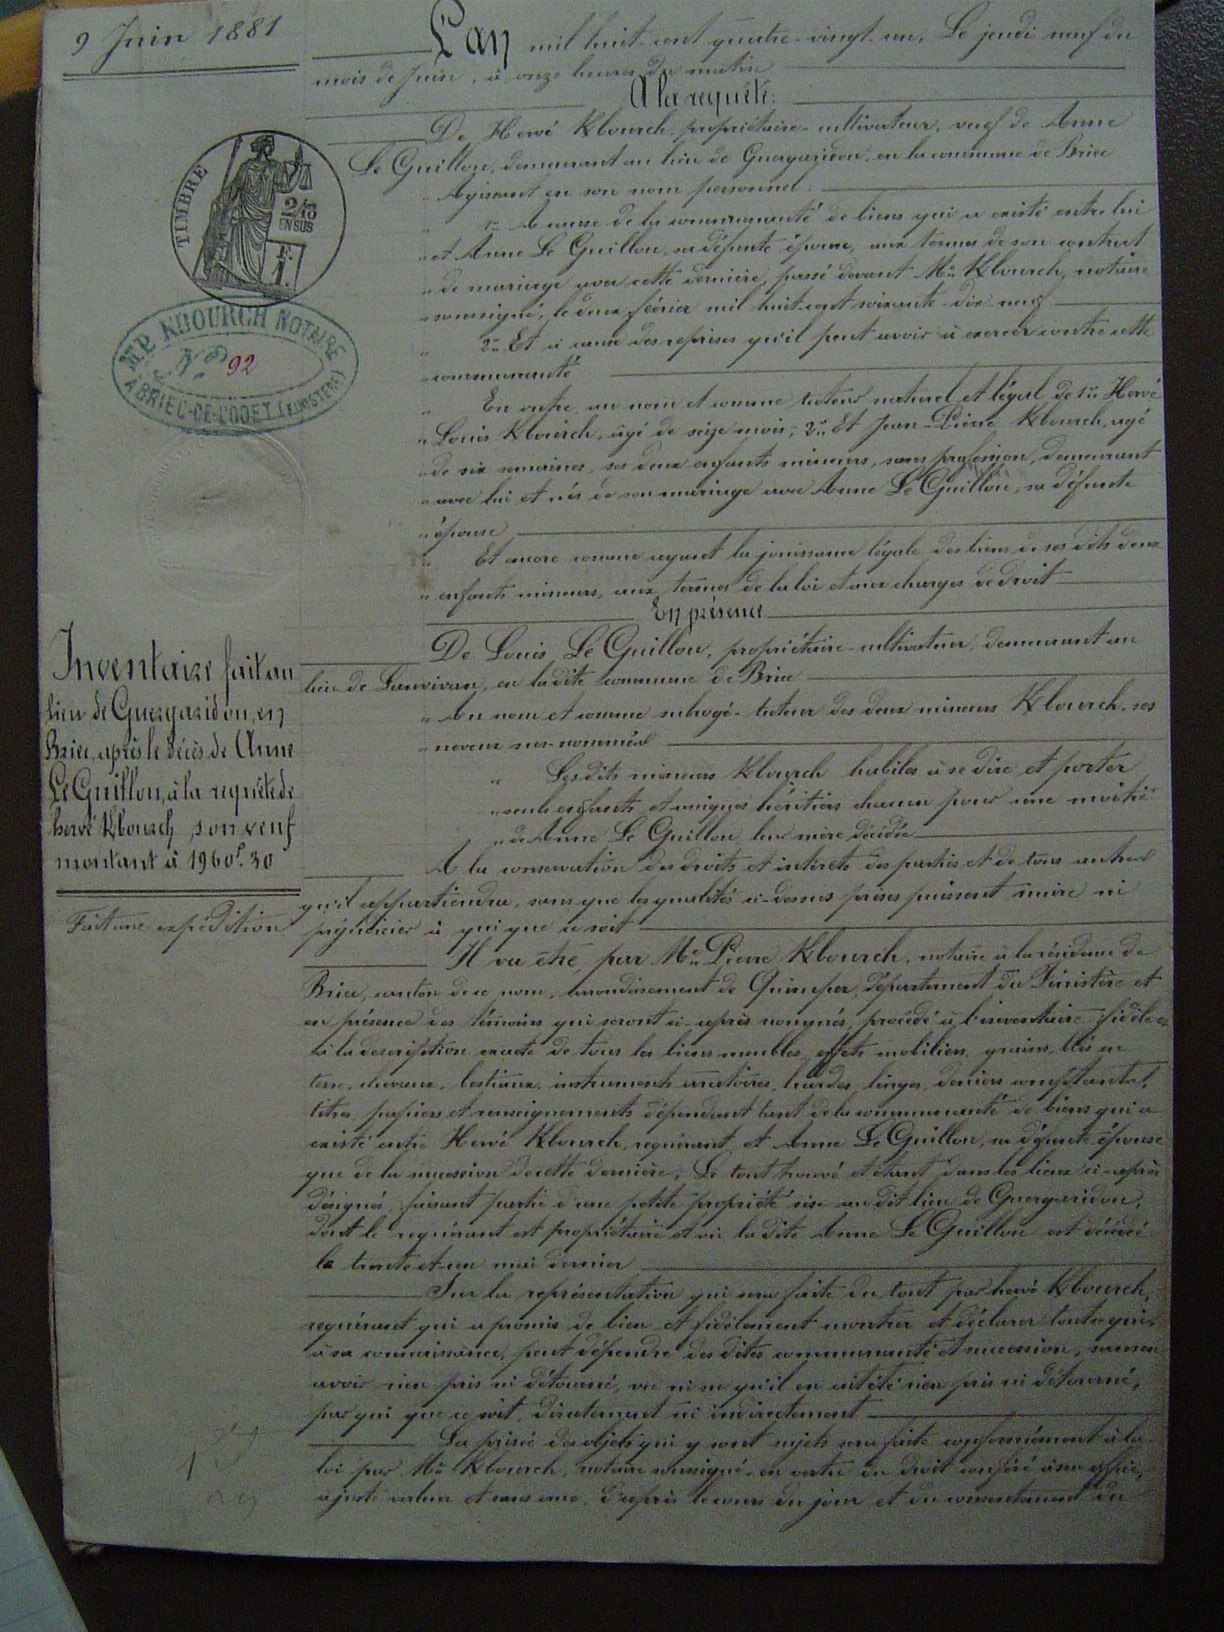 9 Juin 1881
TIMBRE
2/10
EN SUS
Mᵉ P. KBOURCH NOTAIRE
A BRIEC-DE-L'ODET (FINISTÈRE)
Nº 92
Inventaire fait au
lieu de Guergaridou, en
Briec, après le décès de Anne
Le Guillou, à la requête de
hervé Kbourch, son veuf
montant à 1960ᶠ.30
Fait une expédition
L'an mil huit-cent quatre-vingt-un, Le jeudi neuf du
mois de Juin, à onze heures du matin
A la requête:
De Hervé Kbourch, propriétaire-cultivateur, veuf de Anne
Le Guillou, demeurant au lieu de Guergaridou, en la commune de Briec
" Agissant en son nom personnel:
" 1º A cause de la communauté de biens qui a existé entre lui
" et Anne Le Guillou, sa défunte épouse, aux termes de son contrat
" de mariage avec cette dernière, passé devant Mᵉ Kbourch, notaire
" soussigné, le deux février mil huit-cent soixante-dix-neuf
" 2º Et à cause des reprises qu'il peut avoir à exercer contre cette
" communauté
" En outre, au nom et comme tuteur naturel et légal de 1º Hervé
" Louis Kbourch, âgé de seize mois; 2º Et Jean-Pierre Kbourch, âgé
" de six semaines, ses deux enfants mineurs, sans profession, demeurant
" avec lui et nés de son mariage avec Anne Le Guillou, sa défunte
" épouse
" Et encore comme ayant la jouissance légale des biens de ses dits deux
" enfants mineurs, aux termes de la loi et aux charges de droit
En présence
De Louis Le Guillou, propriétaire-cultivateur, demeurant au
lieu de Lanvivan, en la dite commune de Briec
" Au nom et comme subrogé-tuteur des deux mineurs Kbourch, ses
" neveux sus-nommés
" Les dits mineurs Kbourch habiles à se dire et porter
" seuls enfants et uniques héritiers chacun pour une moitié
" de Anne Le Guillou leur mère décédée
A la conservation des droits et intérêts des parties et de tous autres
qu'il appartiendra, sans que les qualités ci-dessus prises puissent nuire ni
préjudicier à qui que ce soit
Il va être, par Mᵉ Pierre Kbourch, notaire à la résidence de
Briec, canton de ce nom, arrondissement de Quimper, département du Finistère et
en présence des témoins qui seront ci-après nommés, procédé à l'inventaire fidèle et
à la description exacte de tous les biens meubles, effets mobiliers, grains, blés en
terre, chevaux, bestiaux, instruments aratoires, hardes, linges, deniers comptants,
titres, papiers et renseignements dépendant tant de la communauté de biens qui a
existé entre Hervé Kbourch, requérant, et Anne Le Guillou, sa défunte épouse
que de la succession de cette dernière; Le tout trouvé et étant dans les lieux ci-après
désignés, faisant partie d'une petite propriété sise au dit lieu de Guergaridou,
dont le requérant est propriétaire et où la dite Anne Le Guillou est décédée
le trente-et-un mai dernier
Sur la représentation qui sera faite du tout par hervé Kbourch,
requérant qui a promis de bien et fidèlement montrer et déclarer tout ce qui,
à sa connaissance, peut dépendre des dites communauté et succession, sans en
avoir rien pris ni détourné, vu ni su qu'il en ait été rien pris ni détourné,
par qui que ce soit, directement ni indirectement
La prisée des objets qui y sont sujets sera faite conformément à la
loi par Mᵉ Kbourch, notaire soussigné, en vertu du droit conféré à son office,
à juste valeur et sans crue, d'après le cours du jour et du consentement du
1